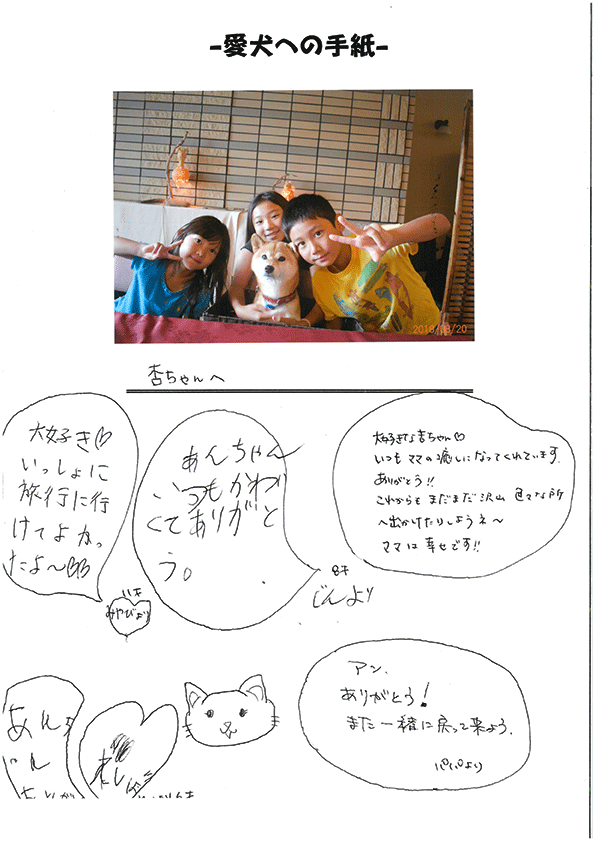 -愛犬への手紙-
杏ちゃんへ
大好き♡
いっしょに
旅行に行
けてよかっ
たよ〜♡♡
11才
みやびより
あんちゃん
いつもかわい
くてありがと
う。
8才
じんより
大好きな杏ちゃん♡
いつもママの癒しになってくれています。
ありがとう!!
これからもまだまだ沢山 色々な所
へ出かけたりしようネ〜
ママは幸せです!!
あんち
アン、
ありがとう!
また一緒に戻って来よう。
パパより